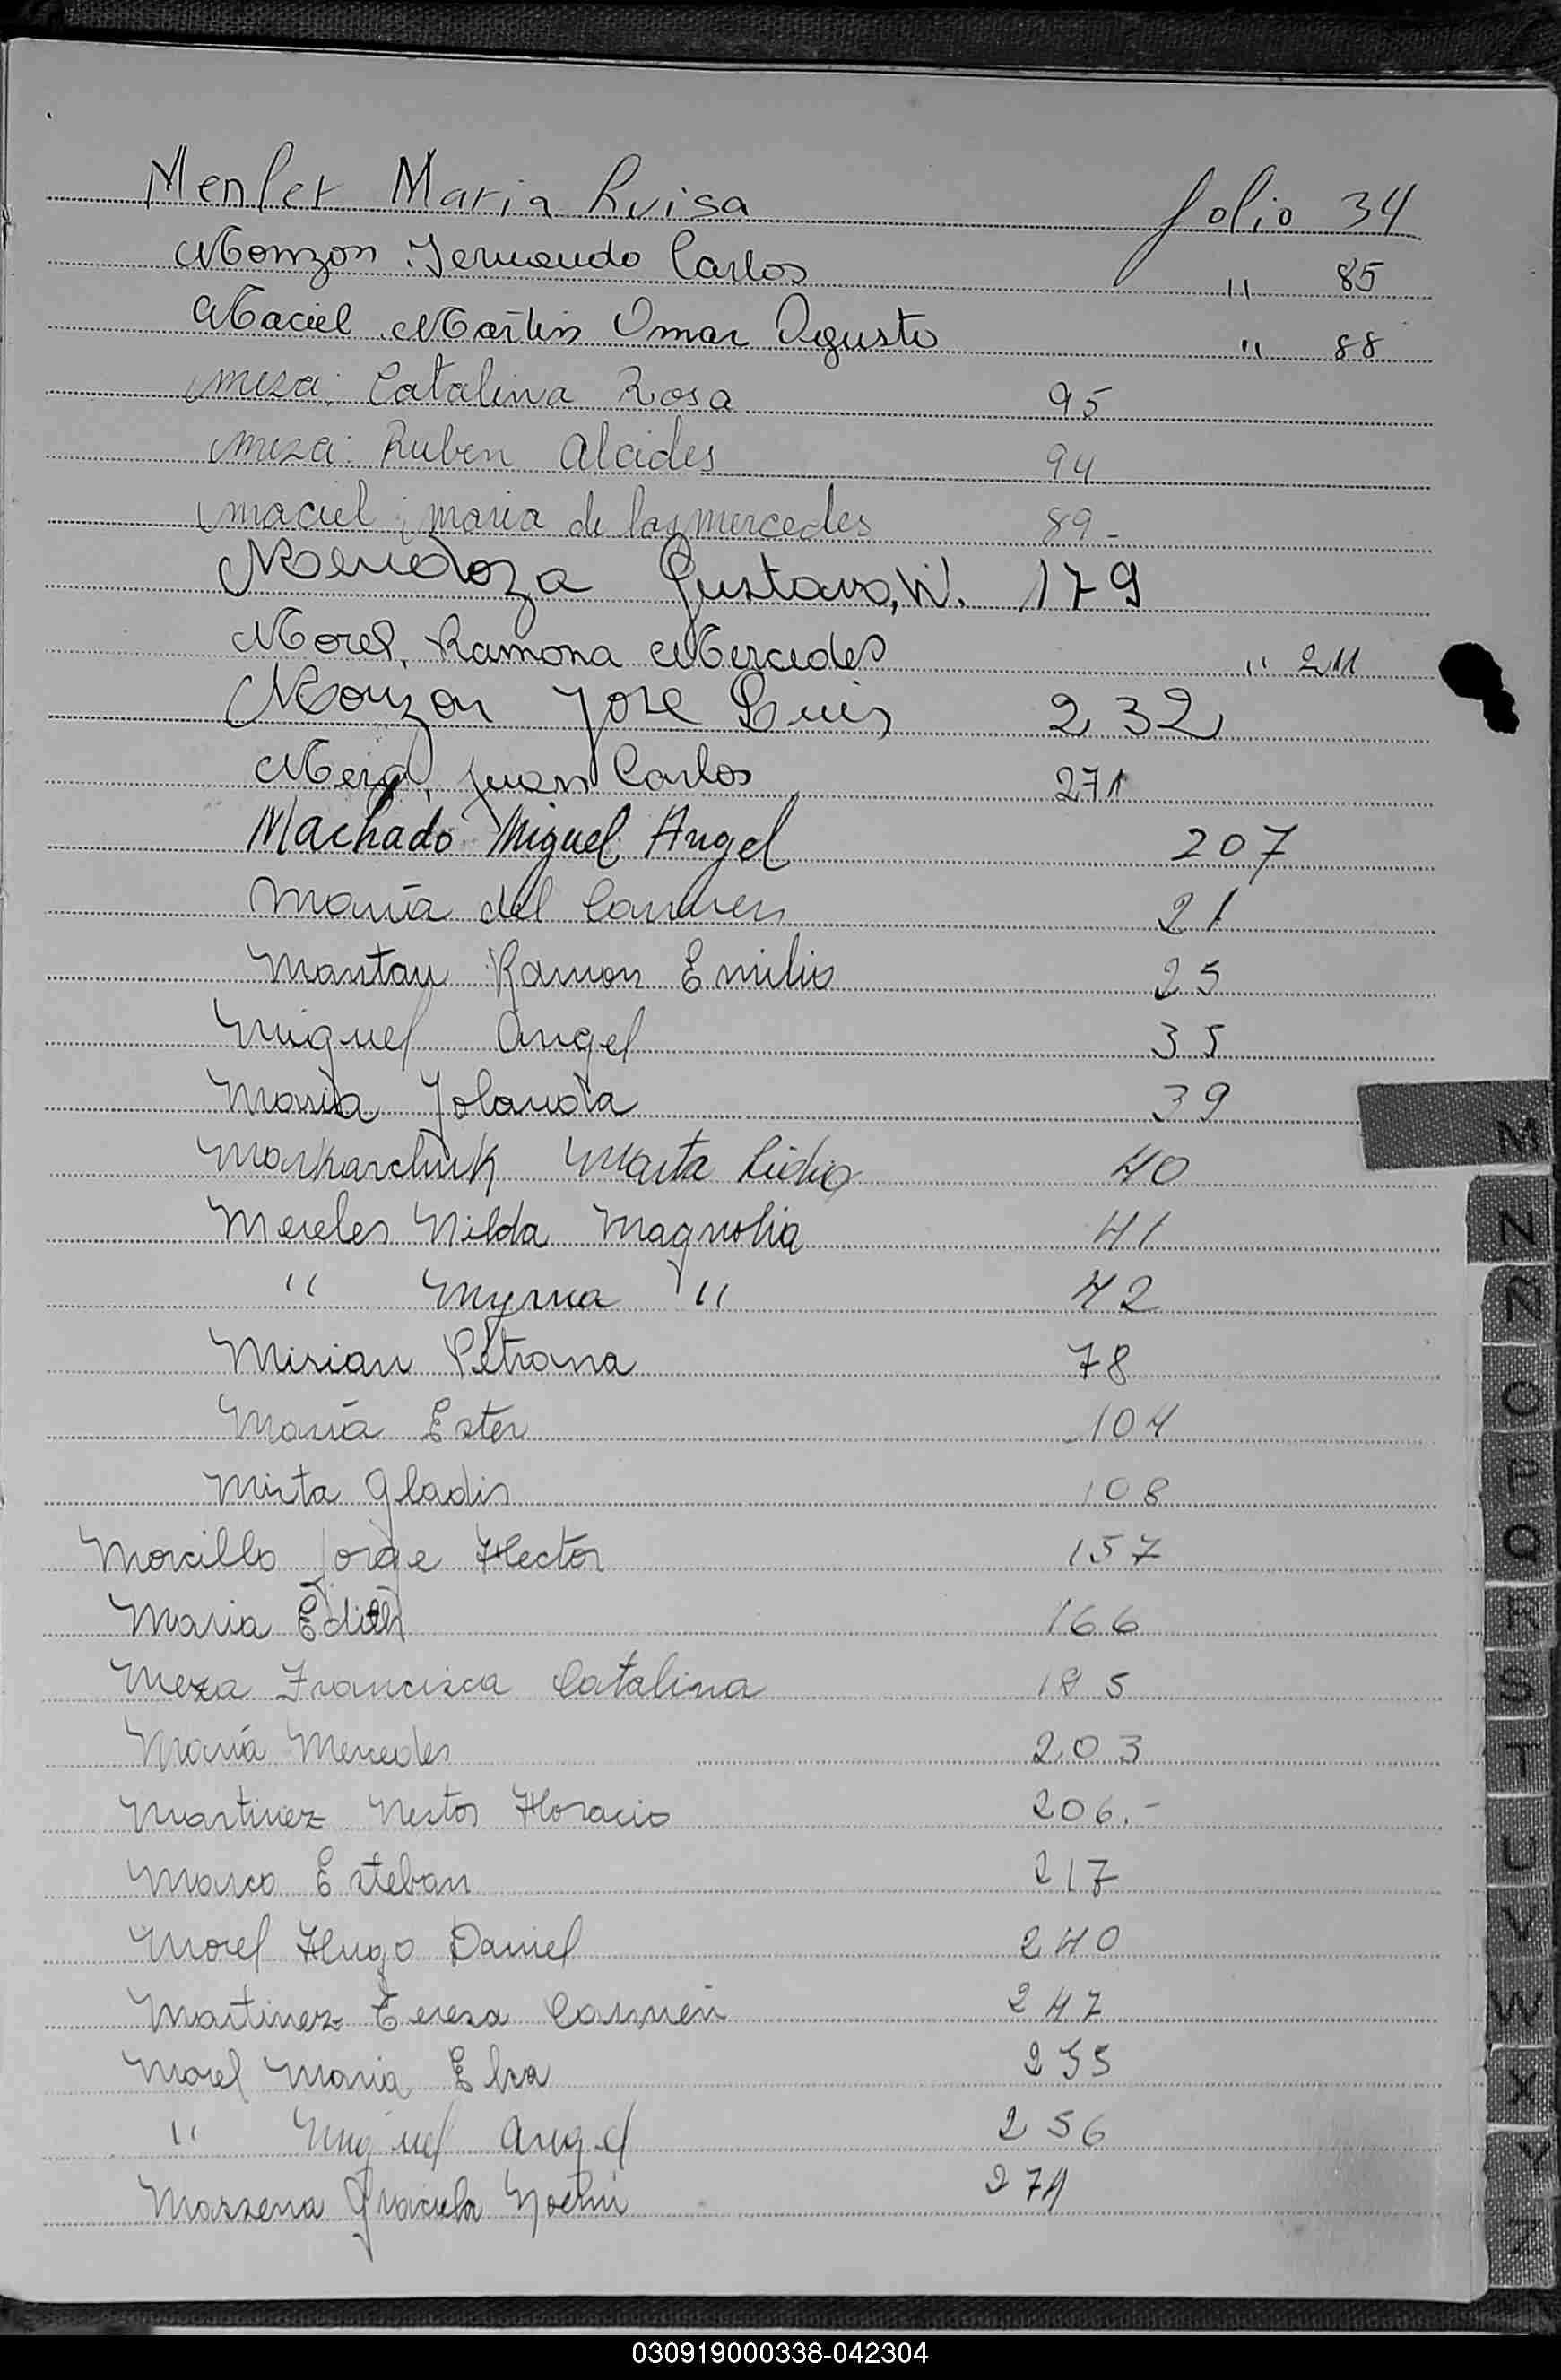 Menlet Maria Luisa folio 34
Monzon Fernando Carlos " 85
Maciel Martin Omar Agusto " 88
meza: Catalina Rosa 95
meza: Ruben Alcides 94
maciel; maria de las mercedes 89-
Mendoza Gustavo, W. 179
Morel, Ramona Mercedes " 211
Monzon Jose Luis 232
Meza, Juan Carlos 271
Machado Miguel Angel 207
María del Carmen 21
Mantau Ramon Emilio 25
Miguel Angel 35
Maria Yolanda 39
Markarchuk Marta Lidia 40
Mereles Nilda Magnolia 41
" Myrna " 42
Mirian Petrona 78
María Ester 104
Mirta Gladis 108
Morcillo Jorge Hector 157
Maria Edith 166
Meza Francisca Catalina 195
María Mercedes 203
Martinez Nestor Horacio 206.-
Marco Esteban 217
Morel Hugo Daniel 240
Martinez Teresa Carmen 247
Morel Maria Elsa 255
" Miguel Angel 256
Massena Graciela Noemí 274
M
N
Ñ
O
P
Q
R
S
T
U
V
W
X
Y
Z
030919000338-042304